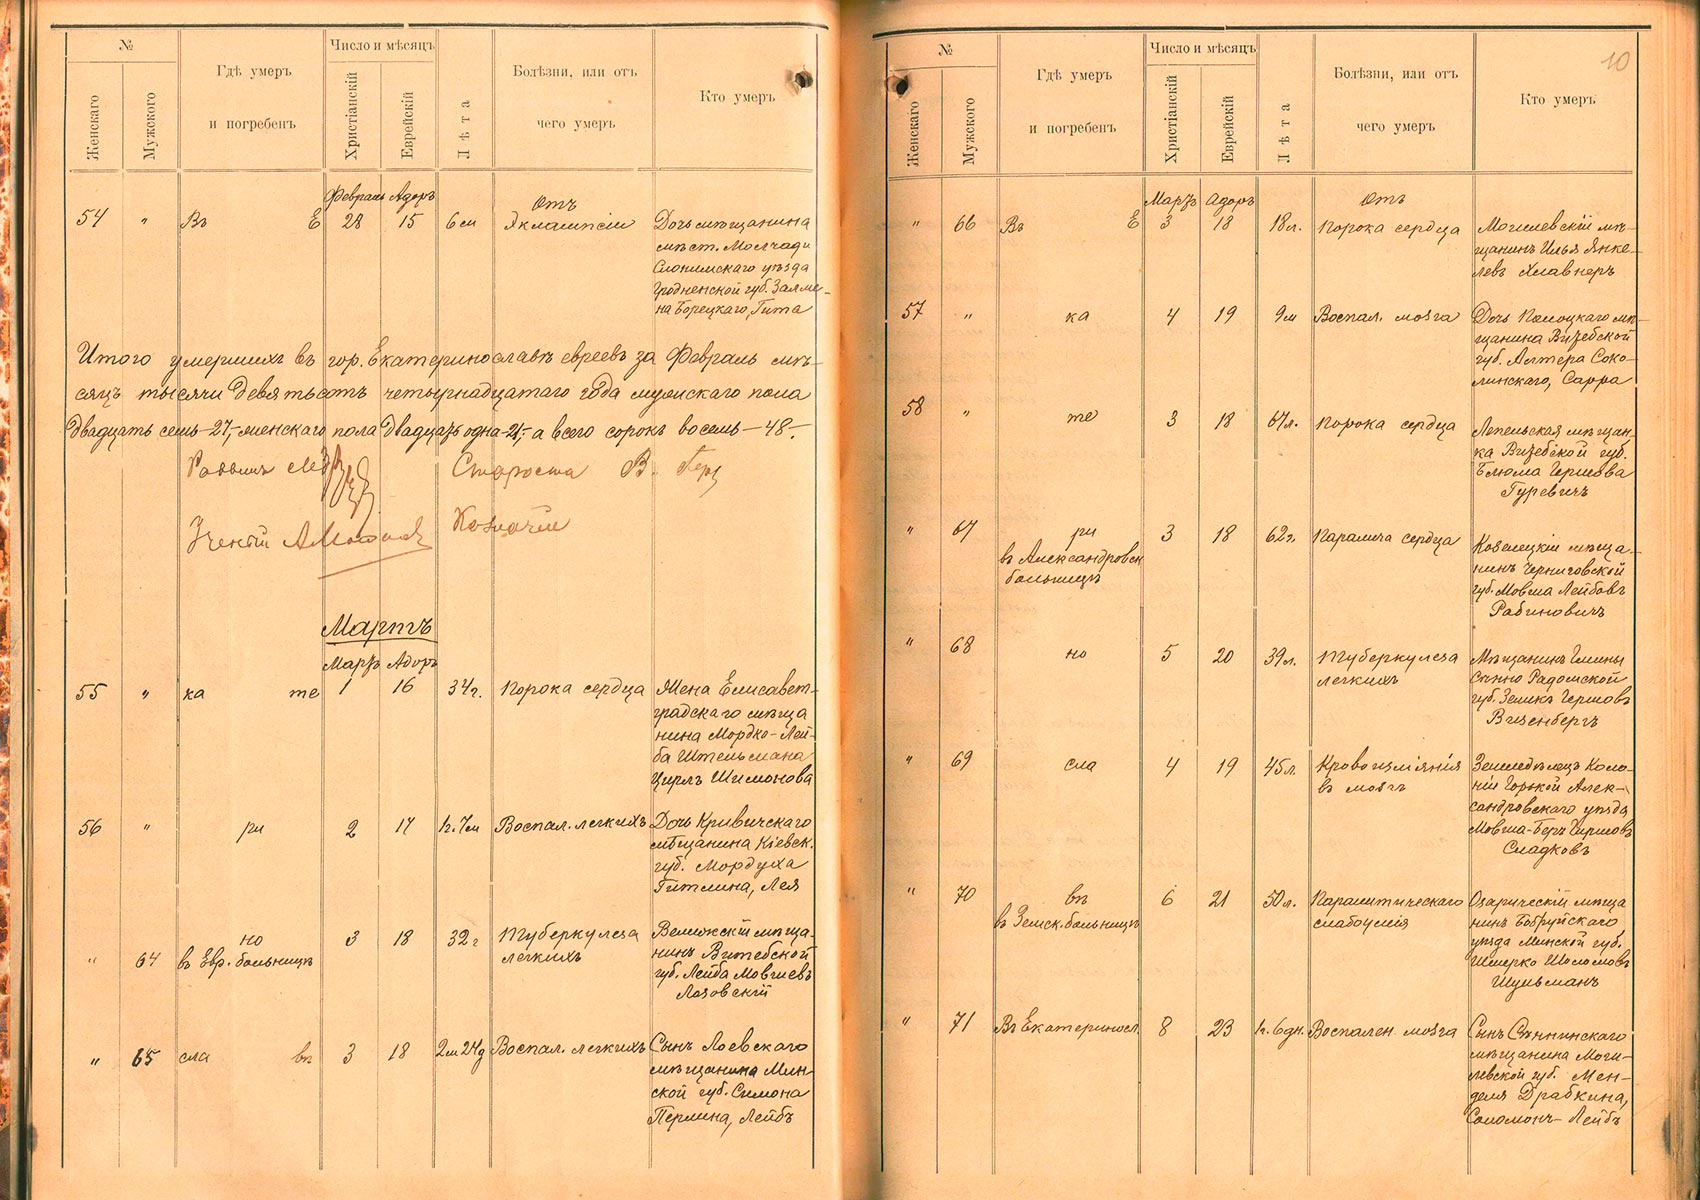 №
Женскаго
Мужского
Гдѣ умеръ
и погребенъ
Число и мѣсяцъ
Христіанскій
Еврейскій
Лѣта
Болѣзни, или отъ
чего умеръ
Кто умеръ
Февраль Адоръ
Отъ
54 " Въ Е 28 15 6 м Эклампсіи Дочь мѣщанина
мѣст. Молчади
Слонимскаго уѣзда
Гродненской губ. Залме-
на Борецкаго, Гита
Итого умершихъ въ гор. Екатеринославѣ евреевъ за Февраль мѣ-
сяцъ тысячи девятьсотъ четырнадцатаго года мужскаго пола
двадцать семь-27, женскаго пола двадцать одна-21, а всего сорокъ восемь-48.
Раввинъ
Староста В.
Ученый
Казначей
Мартъ
Мартъ Адоръ
55 " ка те 1 16 34 г. Порока сердца Жена Елисавет-
градскаго мѣща
нина Мордко-Лей-
ба Штельмана
Цирлъ Шимонова
56 " ри 2 17 1 г. 7 м Воспал. легкихъ Дочь Кривичскаго
мѣщанина Кіевск.
губ. Мордуха
Гитлина, Лея
" 64 но
въ Евр. больницѣ 3 18 32 г Туберкулеза
легкихъ Велижскій мѣща-
нинъ Витебской
губ. Лейба Мовшевъ
Лозовскій
" 65 сла вѣ 3 18 2 м 24 д Воспал. легкихъ Сынъ Лоевскаго
мѣщанина Мин-
ской губ. Симона
Перлина, Лейбъ
10
№
Женскаго
Мужского
Гдѣ умеръ
и погребенъ
Число и мѣсяцъ
Христіанскій
Еврейскій
Лѣта
Болѣзни, или отъ
чего умеръ
Кто умеръ
Мартъ Адоръ
Отъ
" 66 Въ Е 3 18 18 л. Порока сердца Могилевскій мѣ-
щанинъ Илья Янке-
левъ Хлавнеръ
57 " ка 4 19 9 м Воспал. мозга Дочь Полоцкаго мѣ-
щанина Витебской
губ. Алтера Соко-
линскаго, Сарра
58 " те 3 18 67 л. Порока сердца Лепельская мѣщан-
ка Витебской губ.
Блюма Гершова
Гуревичъ
" 67 ри
въ Александровск
больницѣ 3 18 62 г. Паралича сердца Козелецкій мѣща-
нинъ Черниговской
губ. Мовша Лейбовъ
Рабиновичъ
" 68 но 5 20 39 л. Туберкулеза
легкихъ Мѣщанинъ Гмины
Радомской
губ. Зеликъ Гершовъ
Визенбергъ
" 69 сла 4 19 45 л. Кровоизліянія
въ мозгъ Земледѣлецъ Коло-
ніи Горькой Алек-
сандровскаго уѣзда
Мовша-Беръ Гершовъ
Сладковъ
" 70 вѣ
въ Земск. больницѣ 6 21 50 л. Паралитическаго
слабоумія Озаричскій мѣща
нинъ Бобруйскаго
уѣзда Минской губ.
Шмерко Шоломовъ
Шульманъ
" 71 Въ Екатериносл. 8 23 1 г. 6 дн. Воспален. мозга Сынъ Сѣннинскаго
мѣщанина Моги-
левской губ. Мен-
деля Драбкина,
Соломонъ-Лейбъ